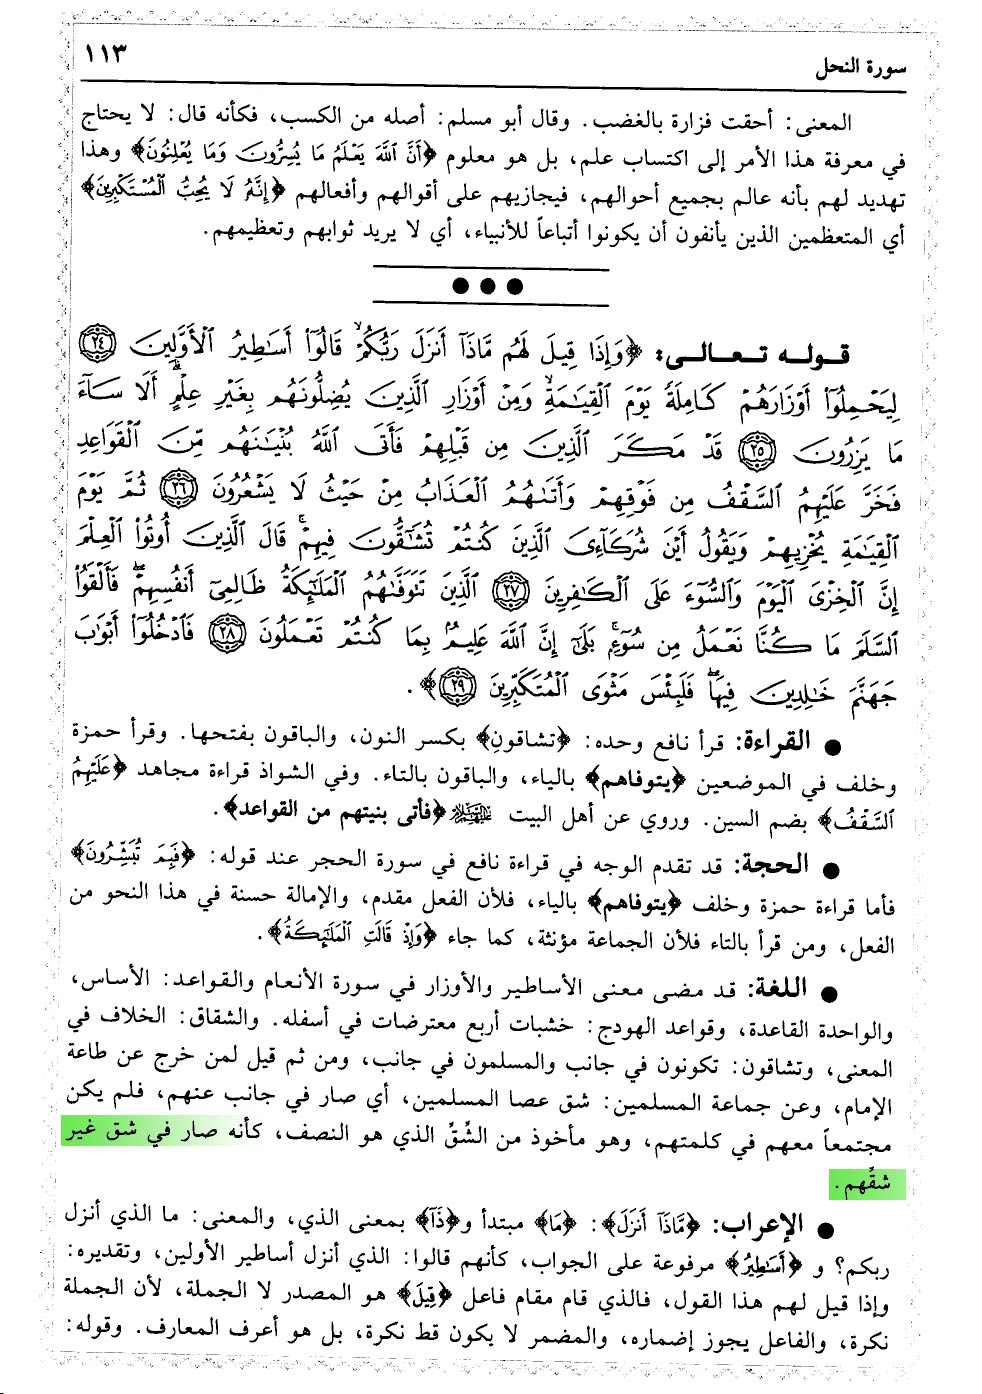 سورة النحل
١١٣
المعنى: أحقت فزارة بالغضب. وقال أبو مسلم: أصله من الكسب، فكأنه قال: لا يحتاج
في معرفة هذا الأمر إلى اكتساب علم، بل هو معلوم ﴿أَنَّ اللَّهَ يَعْلَمُ مَا يُسِرُّونَ وَمَا يُعْلِنُونَ﴾ وهذا
تهديد لهم بأنه عالم بجميع أحوالهم، فيجازيهم على أقوالهم وأفعالهم ﴿إِنَّهُ لَا يُحِبُّ الْمُسْتَكْبِرِينَ﴾
أي المتعظمين الذين يأنفون أن يكونوا أتباعاً للأنبياء، أي لا يريد ثوابهم وتعظيمهم.
قوله تعالى: ﴿وَإِذَا قِيلَ لَهُم مَّاذَا أَنزَلَ رَبُّكُمْ قَالُوا أَسَاطِيرُ الْأَوَّلِينَ ٢٤
لِيَحْمِلُوا أَوْزَارَهُمْ كَامِلَةً يَوْمَ الْقِيَامَةِ وَمِنْ أَوْزَارِ الَّذِينَ يُضِلُّونَهُم بِغَيْرِ عِلْمٍ أَلَا سَاءَ
مَا يَزِرُونَ ٢٥ قَدْ مَكَرَ الَّذِينَ مِن قَبْلِهِمْ فَأَتَى اللَّهُ بُنْيَانَهُم مِّنَ الْقَوَاعِدِ
فَخَرَّ عَلَيْهِمُ السَّقْفُ مِن فَوْقِهِمْ وَأَتَاهُمُ الْعَذَابُ مِنْ حَيْثُ لَا يَشْعُرُونَ ٢٦ ثُمَّ يَوْمَ
الْقِيَامَةِ يُخْزِيهِمْ وَيَقُولُ أَيْنَ شُرَكَائِيَ الَّذِينَ كُنتُمْ تُشَاقُّونَ فِيهِمْ قَالَ الَّذِينَ أُوتُوا الْعِلْمَ
إِنَّ الْخِزْيَ الْيَوْمَ وَالسُّوءَ عَلَى الْكَافِرِينَ ٢٧ الَّذِينَ تَتَوَفَّاهُمُ الْمَلَائِكَةُ ظَالِمِي أَنفُسِهِمْ فَأَلْقَوُا
السَّلَمَ مَا كُنَّا نَعْمَلُ مِن سُوءٍ بَلَى إِنَّ اللَّهَ عَلِيمٌ بِمَا كُنتُمْ تَعْمَلُونَ ٢٨ فَادْخُلُوا أَبْوَابَ
جَهَنَّمَ خَالِدِينَ فِيهَا فَلَبِئْسَ مَثْوَى الْمُتَكَبِّرِينَ ٢٩﴾.
● القراءة: قرأ نافع وحده: ﴿تشاقونِ﴾ بكسر النون، والباقون بفتحها. وقرأ حمزة
وخلف في الموضعين ﴿يتوفاهم﴾ بالياء، والباقون بالتاء. وفي الشواذ قراءة مجاهد ﴿عَلَيْهِمُ
السَّقْفُ﴾ بضم السين. وروي عن أهل البيت عليهم السلام ﴿فأتى بنيتهم من القواعد﴾.
● الحجة: قد تقدم الوجه في قراءة نافع في سورة الحجر عند قوله: ﴿فَبِمَ تُبَشِّرُونَ﴾
فأما قراءة حمزة وخلف ﴿يتوفاهم﴾ بالياء، فلأن الفعل مقدم، والإمالة حسنة في هذا النحو من
الفعل، ومن قرأ بالتاء فلأن الجماعة مؤنثة، كما جاء ﴿وَإِذْ قَالَتِ الْمَلَائِكَةُ﴾.
● اللغة: قد مضى معنى الأساطير والأوزار في سورة الأنعام والقواعد: الأساس،
والواحدة القاعدة، وقواعد الهودج: خشبات أربع معترضات في أسفله. والشقاق: الخلاف في
المعنى، وتشاقون: تكونون في جانب والمسلمون في جانب، ومن ثم قيل لمن خرج عن طاعة
الإمام، وعن جماعة المسلمين: شق عصا المسلمين، أي صار في جانب عنهم، فلم يكن
مجتمعاً معهم في كلمتهم، وهو مأخوذ من الشِّقِّ الذي هو النصف، كأنه صار في شق غير
شقِّهم.
● الإعراب: ﴿مَّاذَا أَنزَلَ﴾: ﴿مَا﴾ مبتدأ و﴿ذَا﴾ بمعنى الذي، والمعنى: ما الذي أنزل
ربكم؟ و ﴿أَسَاطِيرُ﴾ مرفوعة على الجواب، كأنهم قالوا: الذي أنزل أساطير الأولين، وتقديره:
وإذا قيل لهم هذا القول، فالذي قام مقام فاعل ﴿قِيلَ﴾ هو المصدر لا الجملة، لأن الجملة
نكرة، والفاعل يجوز إضماره، والمضمر لا يكون قط نكرة، بل هو أعرف المعارف. وقوله: